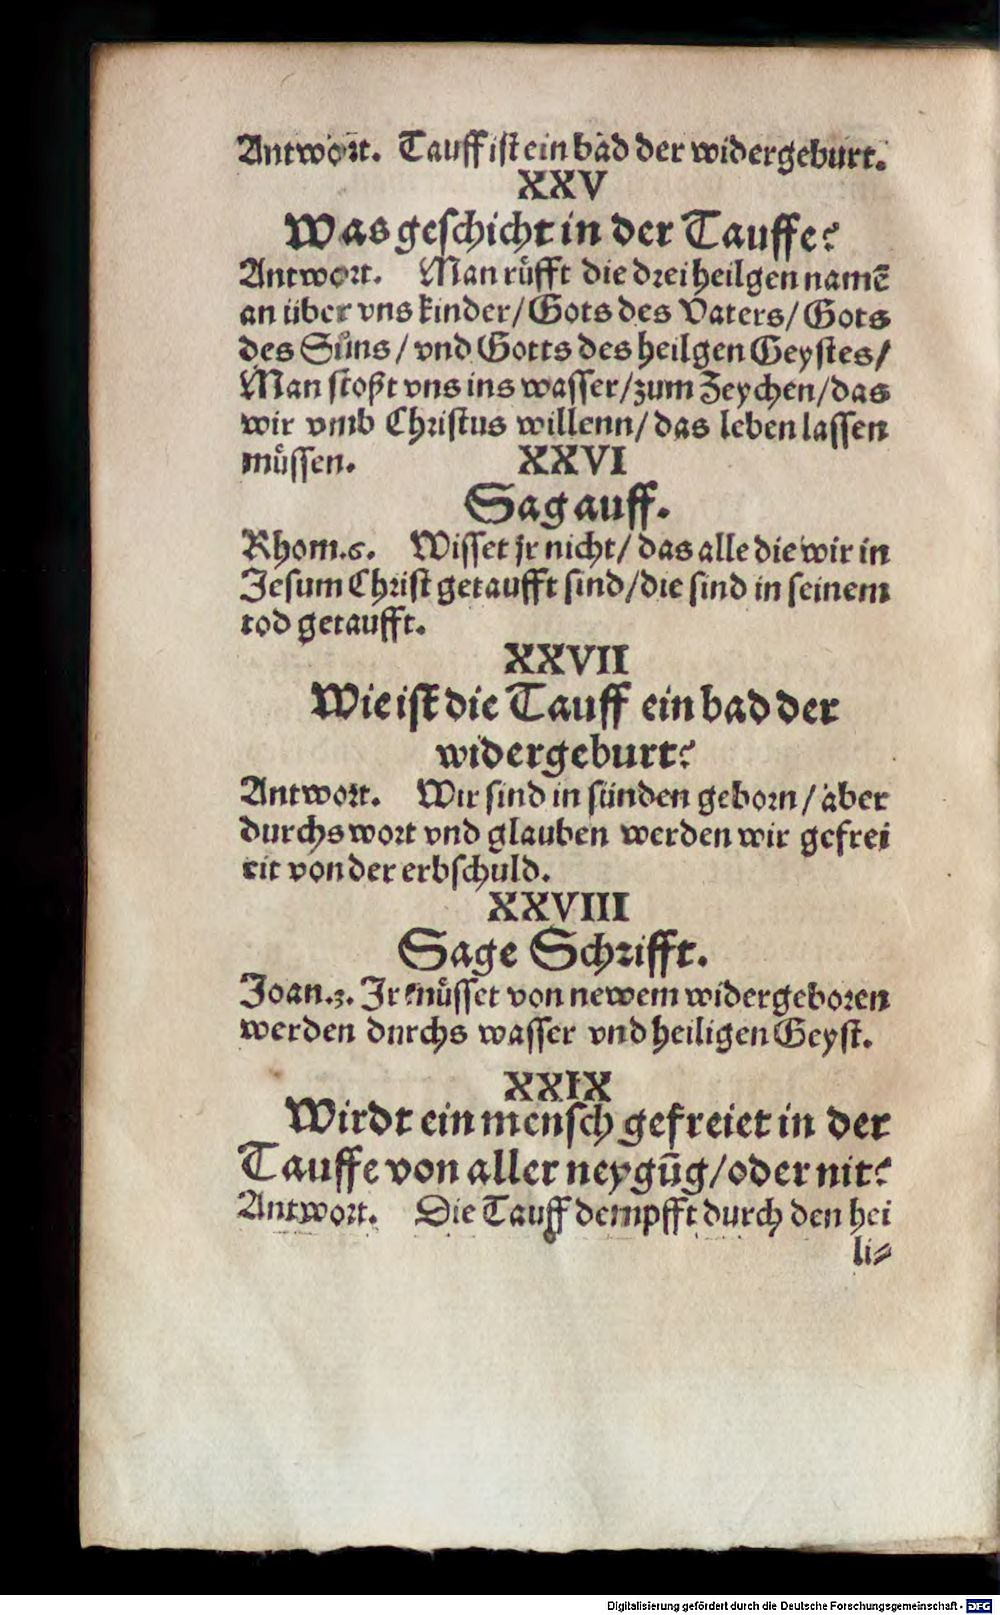 Antwort. Tauff ist ein bad der widergeburt.
XXV
Was geschicht in der Tauffe?
Antwort. Man rüfft die drei heilgen namē
an über vns kinder/ Gots des Vaters/ Gots
des Suͤns/ vnd Gotts des heilgen Geystes/
Man stoßt vns ins wasser/ zum Zeychen/ das
wir vmb Christus willenn/ das leben lassen
muͤssen. XXVI
Sag auff.
Rhom.6. Wisset jr nicht/ das alle die wir in
Jesum Christ getaufft sind/ die sind in seinem
tod getaufft.
XXVII
Wie ist die Tauff ein bad der
widergeburt?
Antwort. Wir sind in sünden geborn/ aber
durchs wort vnd glauben werden wir gefrei
tit von der erbschuld.
XXVIII
Sage Schrifft.
Joan.3. Ir muͤsset von newem widergeboren
werden dnrchs wasser vnd heiligen Geyst.
XXIX
Wirdt ein mensch gefreiet in der
Tauffe von aller neygūg/ oder nit?
Antwort. Die Tauff dempfft durch den hei
li⸗
Digitalisierung gefördert durch die Deutsche Forschungsgemeinschaft - DFG